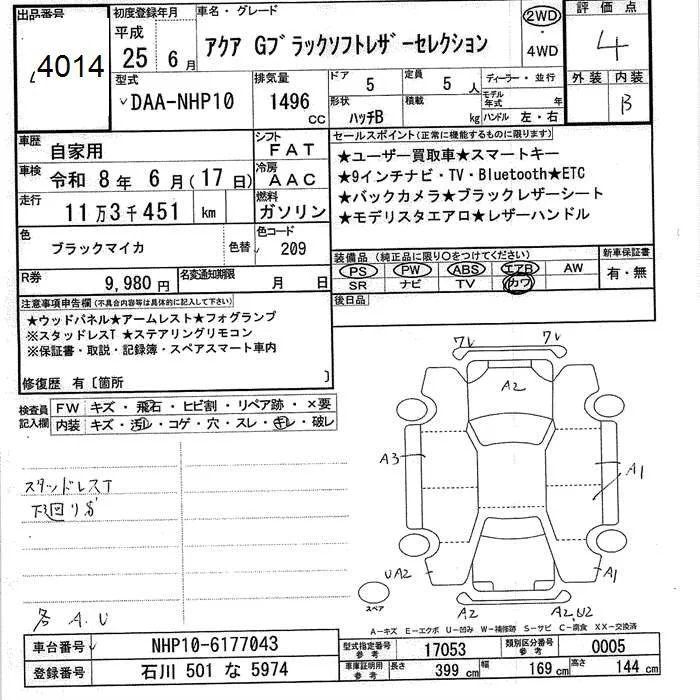 出品番号
4014
初度登録年月
平成
25 6月
車名・グレード
アクア Gブラックソフトレザーセレクション
2WD
・
4WD
評価点
4
外装 内装
B
型式
DAA-NHP10
排気量
1496
CC
ドア 5
定員 5人
形状 ハッチB
積載 kg
ディーラー・並行
モデル年式 年
ハンドル 左・右
車歴 自家用
シフト FAT
車検 令和 8年 6月(17日)
冷房 AAC
走行 11万3千451 km
燃料 ガソリン
色 ブラックマイカ 色替
色コード 209
R券 9,980円
名変通知期限 月 日
セールスポイント(正常に機能するものに限ります)
★ユーザー買取車★スマートキー
★9インチナビ・TV・Bluetooth★ETC
★バックカメラ★ブラックレザーシート
★モデリスタエアロ★レザーハンドル
装備品(純正品に限り○をつけてください)
PS PW ABS エアB AW
SR ナビ TV カワ
新車保証書
有・無
後日品
注意事項申告欄(不具合内容等は具体的に記入して下さい)
★ウッドパネル★アームレスト★フォグランプ
※スタッドレスT ★ステアリングリモコン
※保証書・取説・記録簿・スペアスマート車内
修復歴 有〔箇所 〕
検査員記入欄
FW キズ・飛石・ヒビ割・リペア跡・×要
内装 キズ・汚レ・コゲ・穴・スレ・キレ・破レ
スタッドレスT
下回りサビ
各 A.U
ワレ ワレ
A2
A3
A1
UA2
A1
A2 A2,U2
スペア
A-キズ E-エクボ U-凹み W-補修跡 S-サビ C-腐食 XX-交換済
車台番号 NHP10-6177043
登録番号 石川 501 な 5974
型式指定番号参考 17053
類別区分番号参考 0005
車庫証明用参考 長さ 399cm 幅 169cm 高さ 144cm